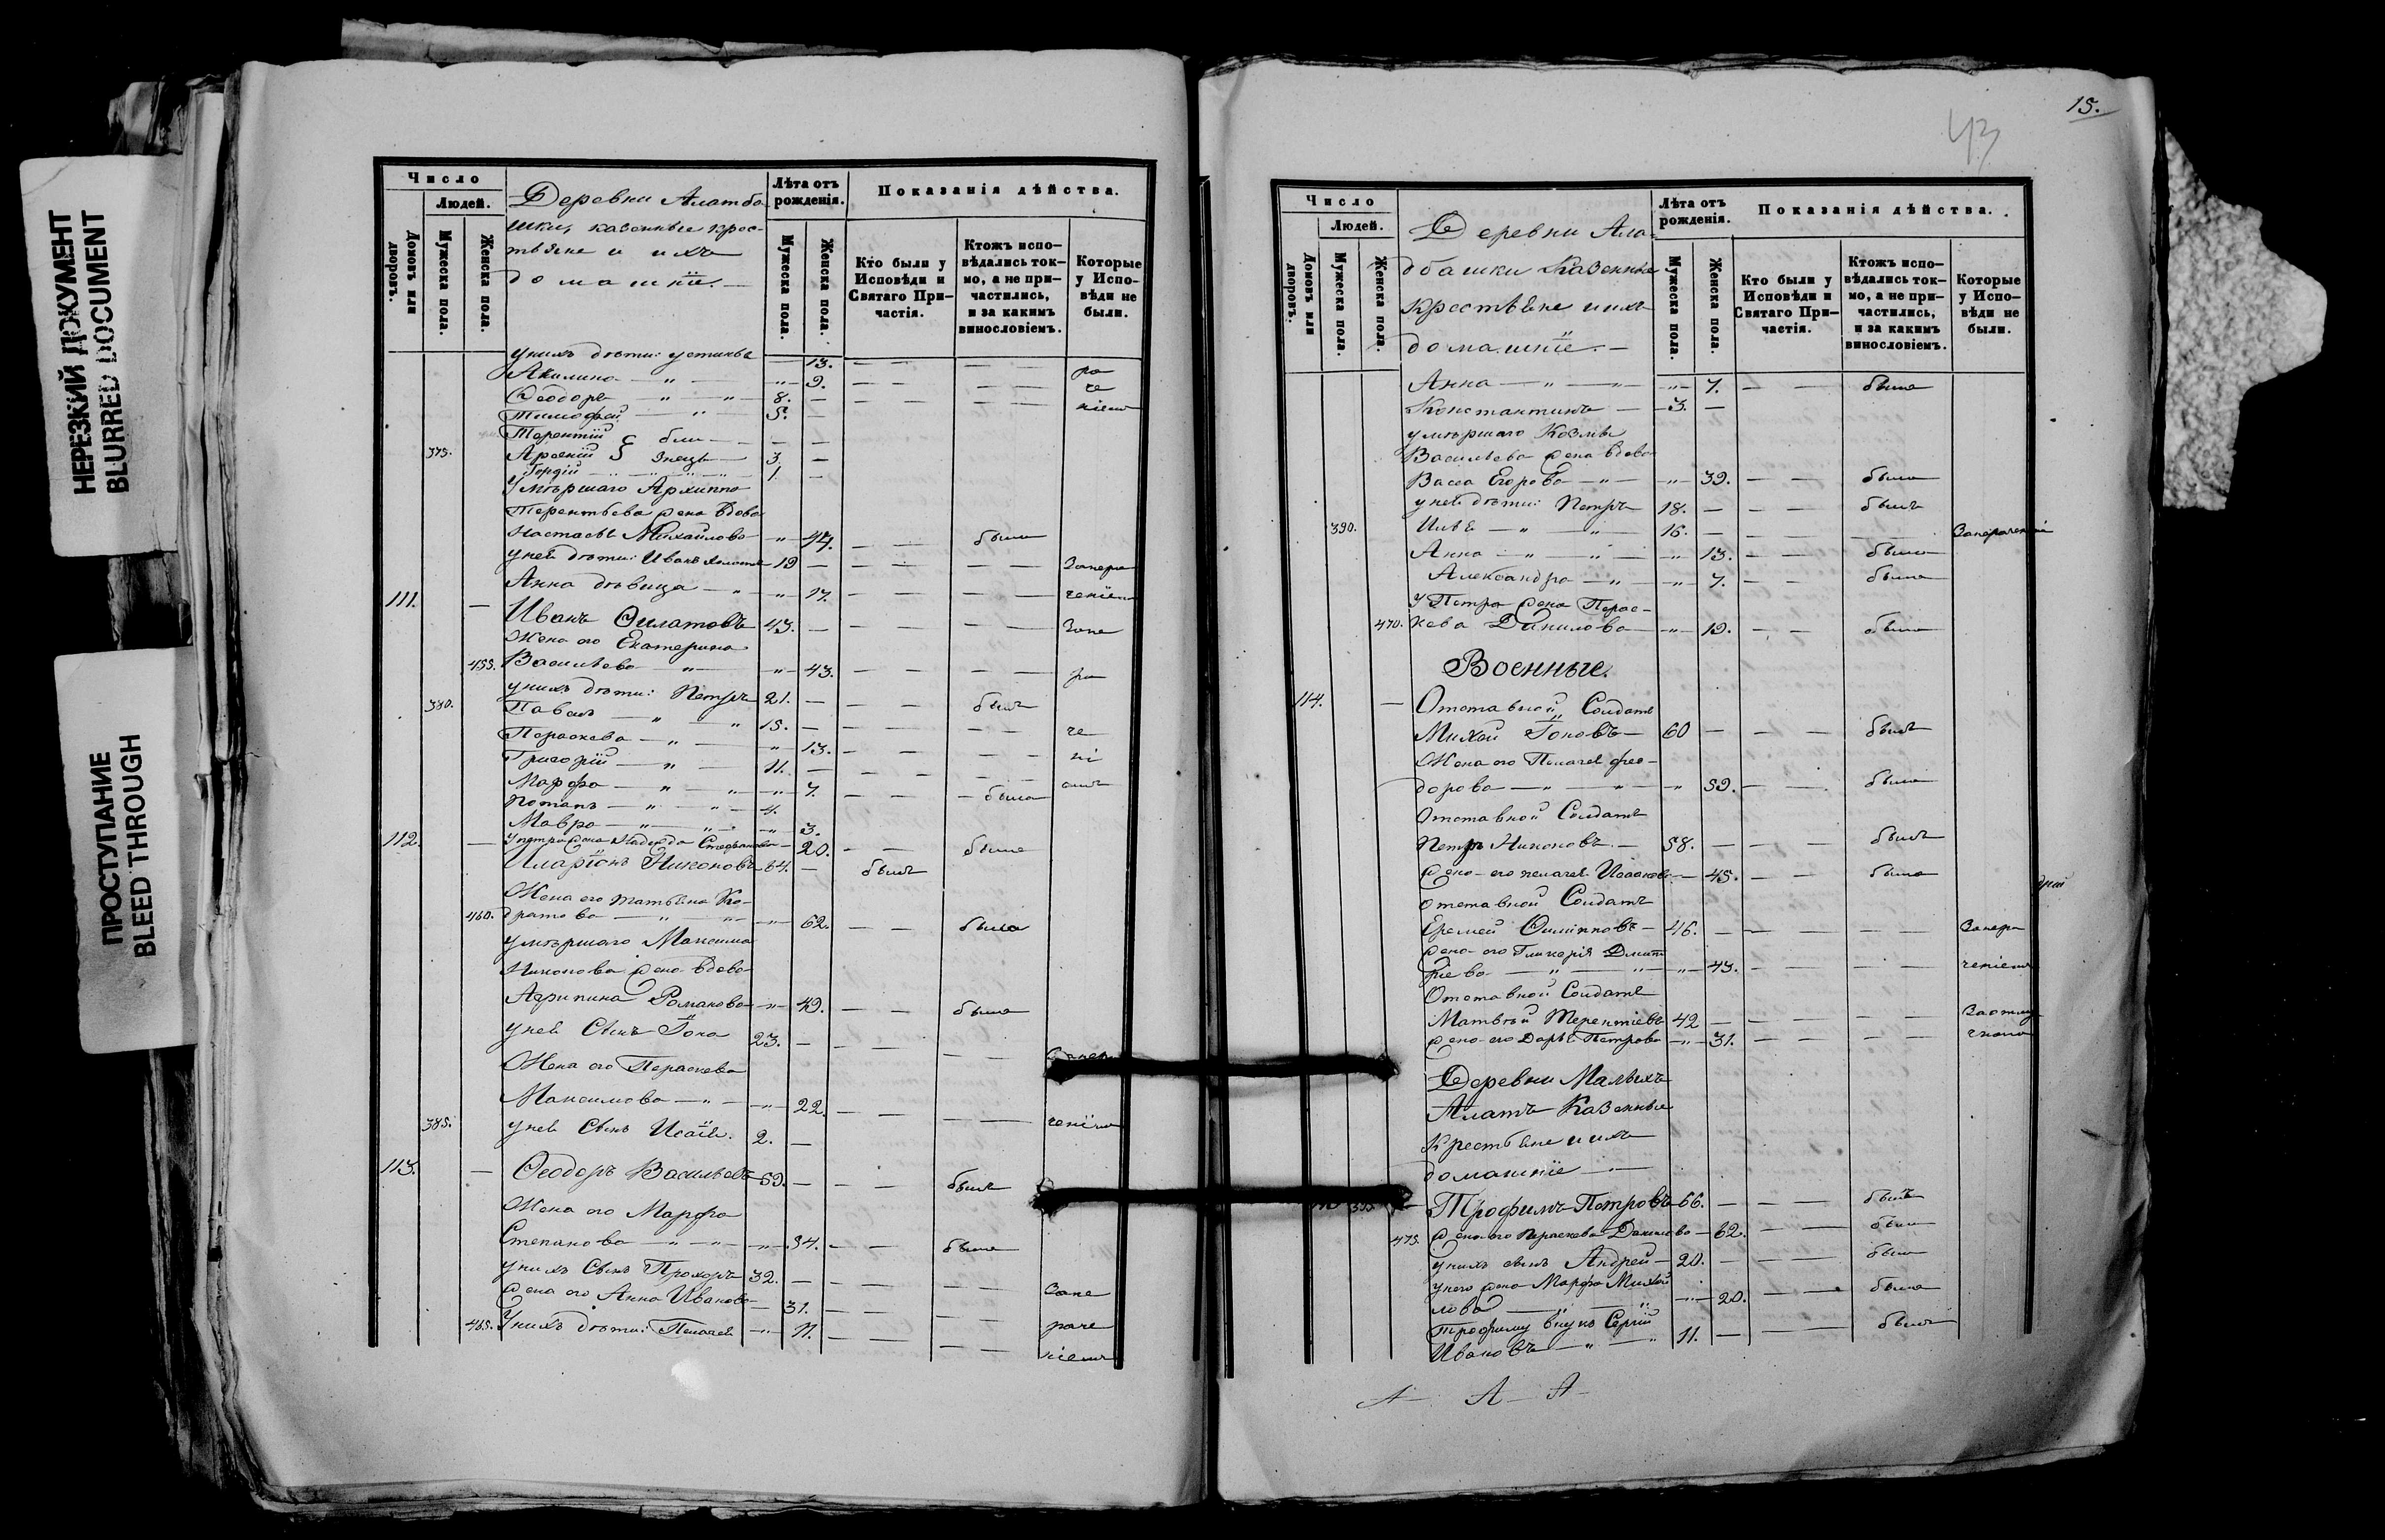 НЕРЕЗКИЙ ДОКУМЕНТ
BLURRED DOCUMENT
ПРОСТУПАНИЕ
BLEED THROUGH
Число
Людей.
Домовъ или дворовъ.
Мужеска пола.
Женска пола.
Деревни Алатба
шки, казенные крес-
тьяне и ихъ
домашніе.
Лѣта отъ рожденія.
Мужеска пола.
Женска пола.
Показанія дѣйства.
Кто были у Исповѣди и Святаго Причастія.
Ктожъ исповѣдались токмо, а не причастились, и за какимъ винословіемъ.
Которые у Исповѣди не были.
у нихъ дѣти: 13. ра
Акилина — " — " 9. че
Ѳеодоръ — " — " 8. — ніемъ
Тимофей — " — 5. —
Терентій
375. Арсеній близнецы 3. —
Гордій 1. —
Умершаго Архиппа
Терентьева жена вдова
Настасья Михайлова — " 44. была
у ней дѣти: Иванъ 19 — Запира
Анна дѣвица — " — " 17. теніемъ
111. — Иванъ Филатовъ 43. — Запи
Жена его Екатерина
455. Васильева — " — " 43. ра
у нихъ дѣти: Петръ 21. — былъ
380. Павелъ — " — " 15. — че
Параскева — " — " 13. ні
Григорій — " — 11. — емъ
Марфа — " — " 7. была
Потапъ — " — " 4.
Мавра — " — " 3.
112. — у Петра жена Надежда Стефанова 20. была
Иларіонъ Никоновъ 64. — былъ
Жена его Татьяна Ко-
460. дратова — " — " 62. была
умершаго Максима
Никонова жена вдова
Агрипина Романова — " 49. была
у ней Сынъ Іона 23. —
Жена его Параскева
Максимова — " — " 22. теніемъ
385. у ней Сынъ Исаія. 2. —
113. — Ѳеодоръ Васильевъ 59. — былъ
Жена его Марфа
Степанова — " — " 54. была
у нихъ Сынъ Прохоръ 32. — Запе
жена его Анна Иванова 31. раче
465. У нихъ дѣти: Пелагея — " 11. ніемъ
15.
43
Число
Людей.
Домовъ или дворовъ.
Мужеска пола.
Женска пола.
Деревни Ала-
дбашки Казенные
крестьяне и ихъ
домашніе. —
Лѣта отъ рожденія.
Мужеска пола.
Женска пола.
Показанія дѣйства.
Кто были у Исповѣди и Святаго Причастія.
Ктожъ исповѣдались токмо, а не причастились, и за какимъ винословіемъ.
Которые у Исповѣди не были.
Анна — " — " 7. была
Константинъ — 3. —
умершаго Козмы
Васильева жена вдова
Васса Егорова — " — " 39. была
у ней дѣти: Петръ 18. — былъ
390. Илья — " — " 16. —
Анна — " — " 13. была
Александра — " — " 7. была
у Петра жена Парас-
470. кева Данилова — " 19. была
Военные.
114. — Отставной Солдатъ
Михей Іоновъ — 60 — былъ
Жена его Пелагея Ѳео-
дорова — " — " 59. была
Отставной Солдатъ
Петръ Никоновъ — 58. — былъ
жена его Пелагея Исаакова — 45. была
Отставной Солдатъ
Еремей Филипповъ — 46. — Запира
жена его Гликерія Дмит
ріева — " — " 43. теніемъ
Отставной Солдатъ
Матвѣй Терентіевъ 42 — Заотлу
жена его Дарья Петрова — " 31. чкою
Деревни Малыхъ
Алатъ Казенные
крестьяне и ихъ
домашніе —
395 Трофимъ Петровъ 66. — былъ
475. жена его Параскева Данилова — 62. была
у нихъ сынъ Андрей — 20. — былъ
у него жена Марфа Михай
лова — " — " 20. была
Трофиму внукъ Сергій
Ивановъ — " — " 11. — былъ